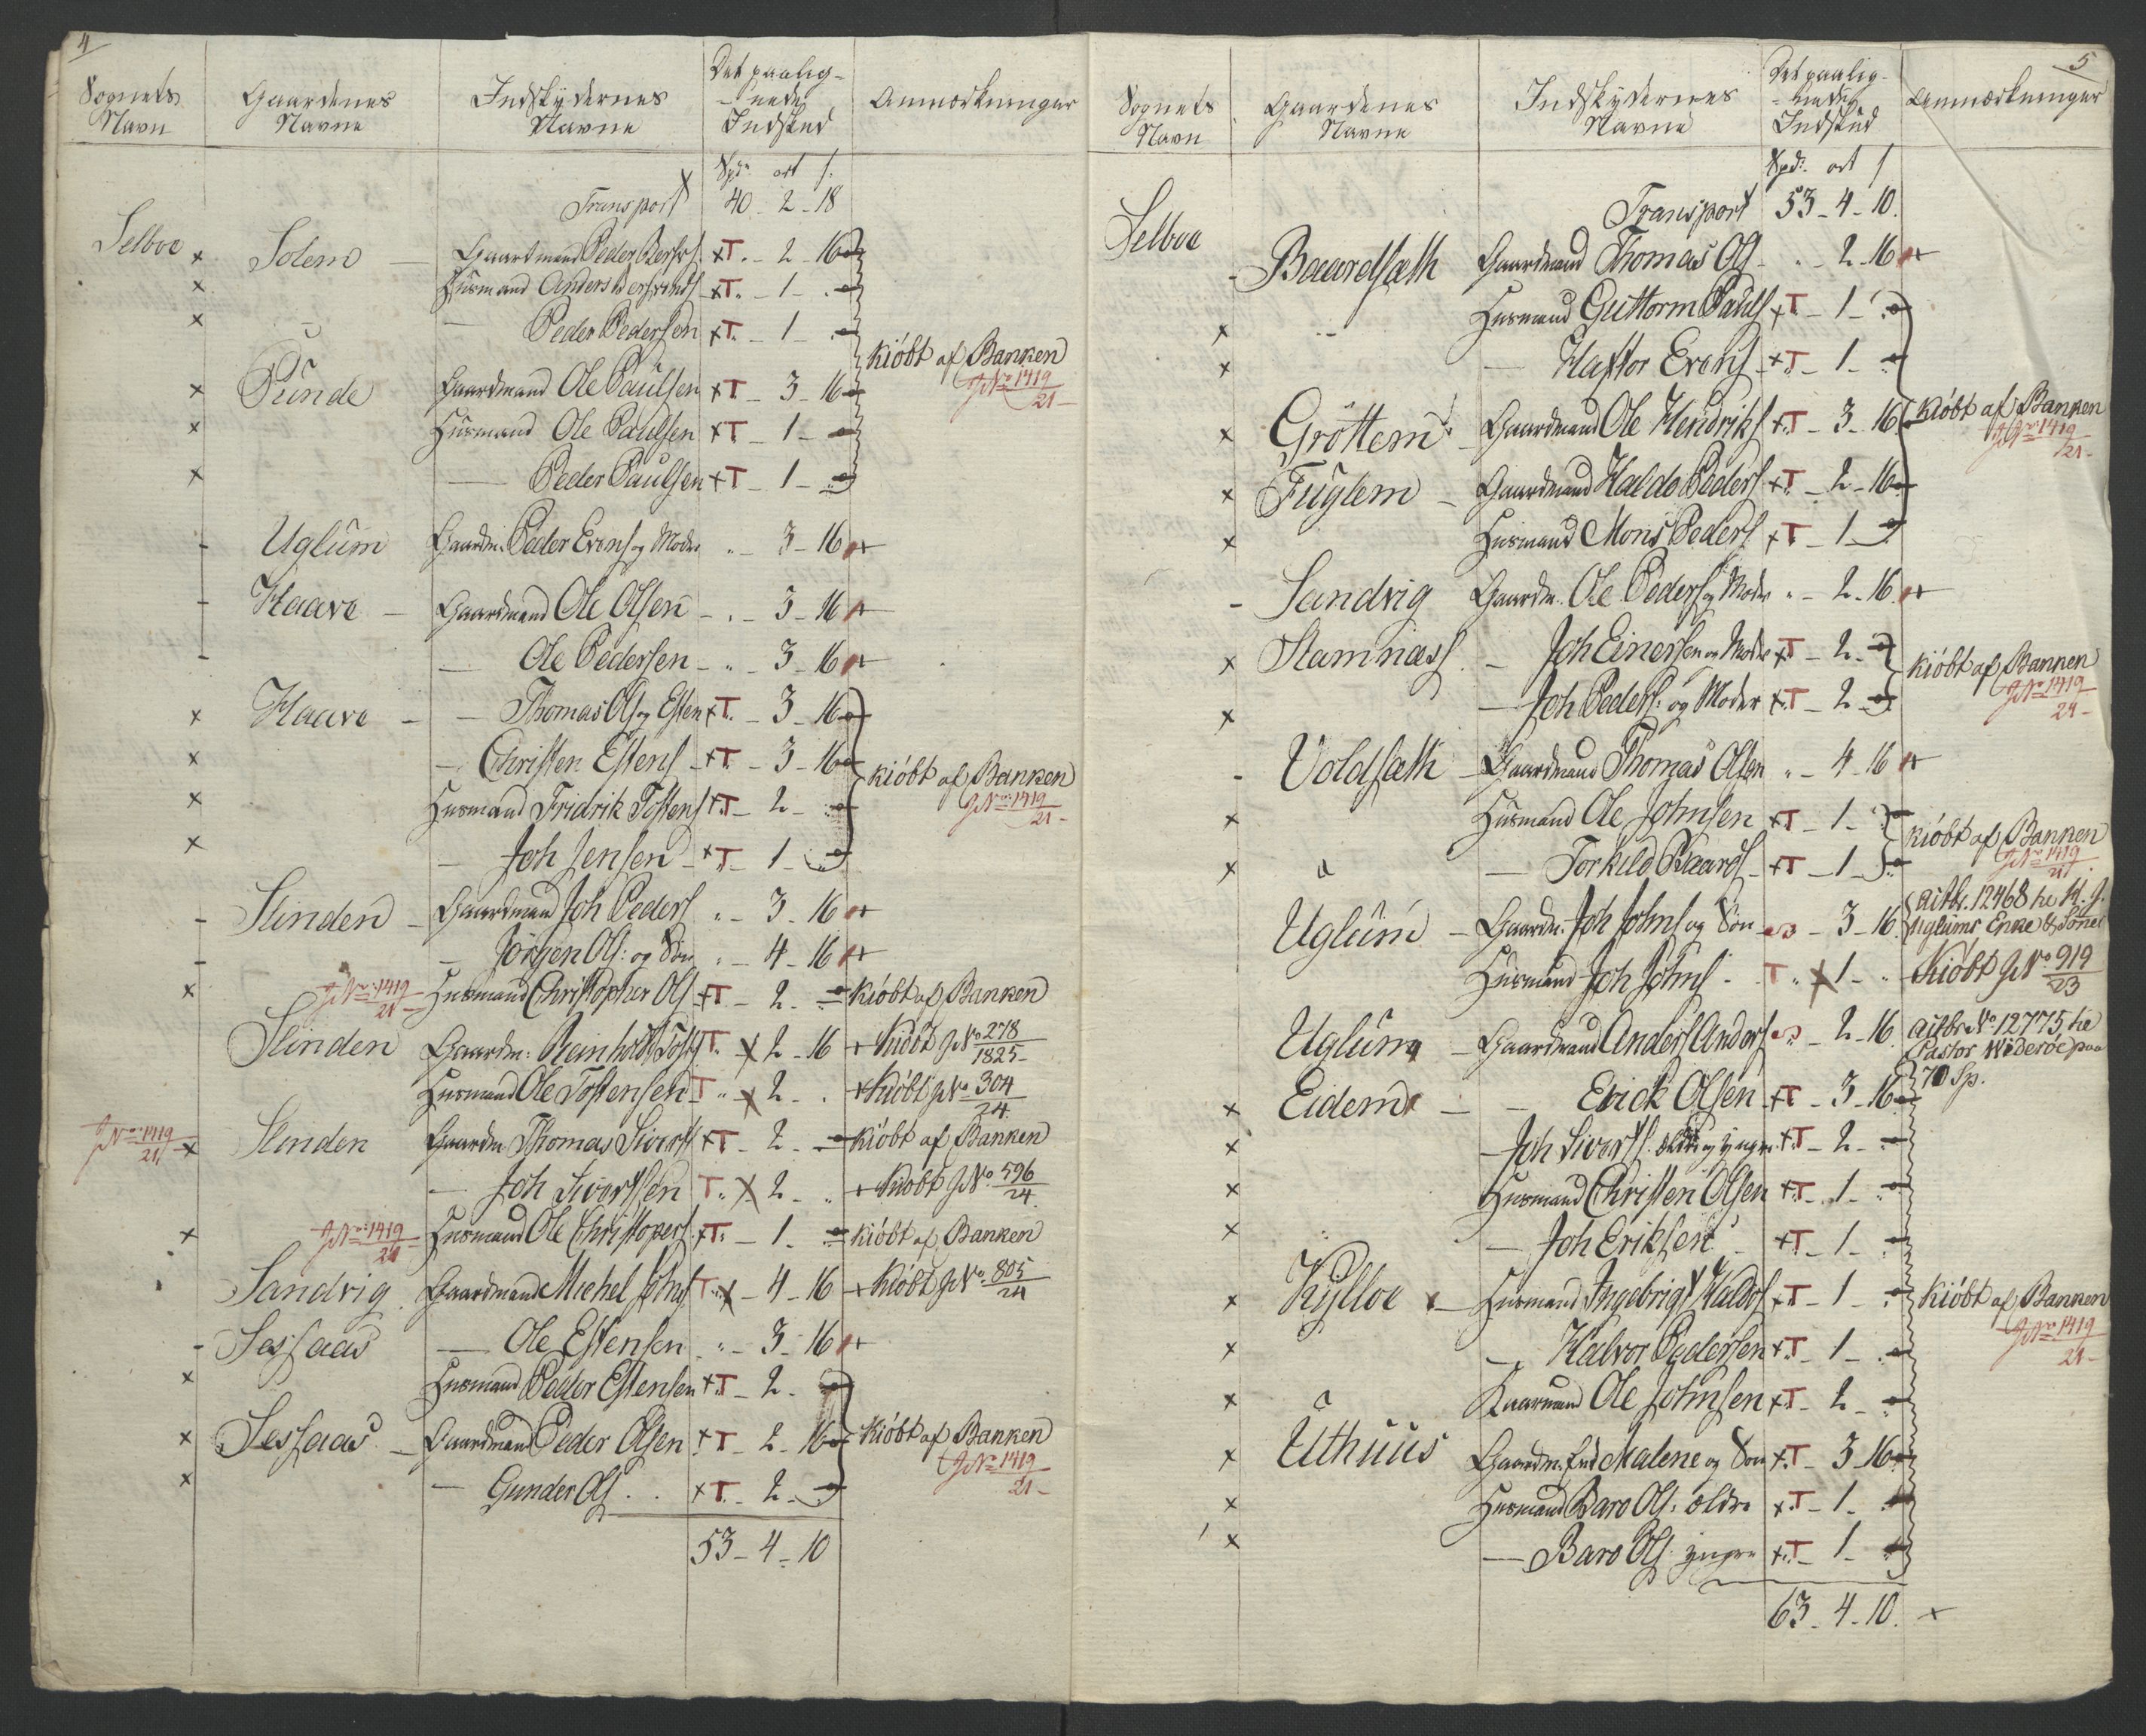 4
Sognets Navn | Gaardenes Navne | Indskydernes Navne | Det paalig-nede Indskud | Anmærkninger
Spd. ort s.
Transport 40 - 2 - 18
Selboe x Solem — Gaardmand Peder Peders. xT. - 2 - 16
x Huusmand Anders xT. - 1 - .
x — Peder Pedersen xT. - 1 - .
Kiöbt af Banken
JNo 1419/21
x Gaardmand Ole Paulsen xT - 3 - 16
x Huusmand Ole Paulsen xT - 1 -
x — Peder Paulsen xT - 1 -
- Uglum Gaardm. Peder Evens og Moder " - 3 - 16
- Haave — Gaardmand Ole Olsen - . - 3 - 16
- — Ole Pedersen - " - 3 - 16
x Haave — — Thomas Ols og Esten xT. - 3 - 16
x — Christen Estens - xT - 3 - 16
Kiöbt af Banken
JNo 1419/21
x Huusmand Fridrik Tostens xT - 2 -
x — Joh Jensen - xT - 1 -
- Slinden — Gaardmand Joh Peders " - 3 - 16
- — Jörgen Ols: og Sön " - 4 - 16
x JNo 1419/21 Huusmand Christopher Ols xT - 2 - Kiöbt af Banken
Slinden Gaardm: Reinholdt Tost T. x 2 - 16 + Kiöbt JNo 278/1825
Huusmand Ole Tostensen T " x 2 - . + Kiöbt JNo 304/24
JNo 1419/21 x Slinden Gaardm. Thomas Siverts xT - 2 - Kiöbt af Banken
— Joh Sivertsen T. x 2 - " + Kiöbt JNo 596/24
x JNo 1419/21 Huusmand Ole Christopers xT. - 1 - Kiöbt af Banken
Sandvig Gaardmand Michel Johns T x - 4 - 16 + Kiöbt JNo 805/24
- Sessaas — Ole Estensen " - 3 - 16
x Huusmand Peder Estensen xT - 2 -
x Sessaas — Gaardmand Peder Olsen xT - 2 - 16 Kiöbt af Banken
JNo 1419/21
x — Gunder Ols . . xT - 2 -
53 - 4 - 10
5
Sognets Navn | Gaardenes Navne | Indskydernes Navne | Det paalig-nede Indskud | Anmærkninger
Spd: ort s
Transport 53 - 4 - 10.
Selboe
- Baardsæth Gaardmand Thomas Ols - . - 2 - 16
x Huusmand Guttorm Pauls xT - 1 -
x — Haftor Evens - xT - 1 -
x Gröttem Gaardmand Ole Hendriks xT - 3 - 16 Kiöbt af Banken
JNo 1419/21
x Fuglem — Gaardmand Haldo Peders xT - 2 - 16
x Huusmand Mons Peders xT - 1 -
- Sandvig Gaardm. Ole Peders og Moder " - 2 - 16
x Stamnæss — Joh Einersen og Moder xT - 2 - Kiöbt af Banken
JNo 1419/21
x — Joh Peders: og Moder xT - 2 -
- Voldsæth — Gaardmand Thomas Olsen " - 4 - 16
x Huusmand Ole Johnsen xT - 1 -
Kiöbt af Banken
JNo 1419/21
x " — Torkild Baards - xT - 1 -
Uglum — Gaardm. Joh Johns og Sön - 3 - 16 Actbr. 12468
Uglums Enke & Söner
Huusmand Joh Johns - T " x 1 - " Kiöbt JNo 919/23
Uglum — Gaardmand Anders Anders - 2 - 16. Actbr No 12775
Pastor Wideröe paa
70 Sp.
x Eidem — — Erick Olsen xT - 3 - 16
x — Joh Siverts: ældre og yngre xT - 2 -
x Huusmand Christen Olsen xT - 1 -
x — Joh Eriksen xT - 1 -
x Kylloe x — Huusmand Ingebrigt Haldos xT - 1 - Kiöbt af Banken
JNo 1419/21
x — Halvor Pedersen xT - 1 -
x " Ole Johnsen xT - 2 -
x Uthuus Gaardm. Malene og Sön xT - 3 - 16
x Huusmand Baro Ols: ældre xT - 1 -
x — Baro Ols: yngre xT - 1 -
63 - 4 - 10. x